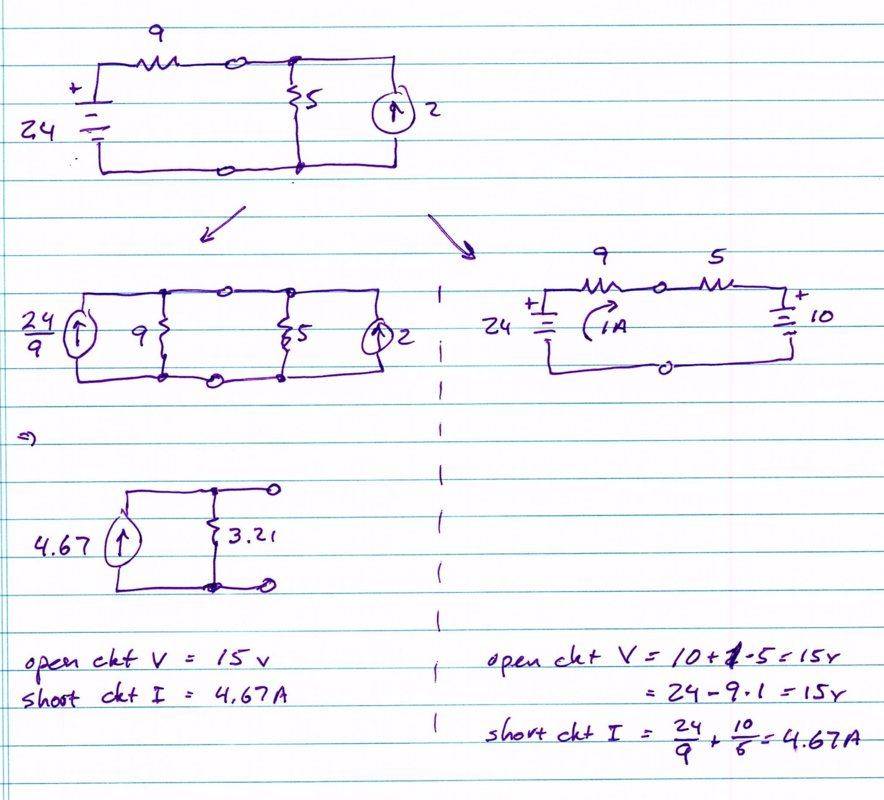 9
+
24
5
2
24/9
9
5
2
9
5
+
24
1A
+
10
⇒
4.67
3.21
open ckt V = 15v
short ckt I = 4.67A
open ckt V = 10+1·5=15v
= 24-9·1 = 15v
short ckt I = 24/9 + 10/5 = 4.67A